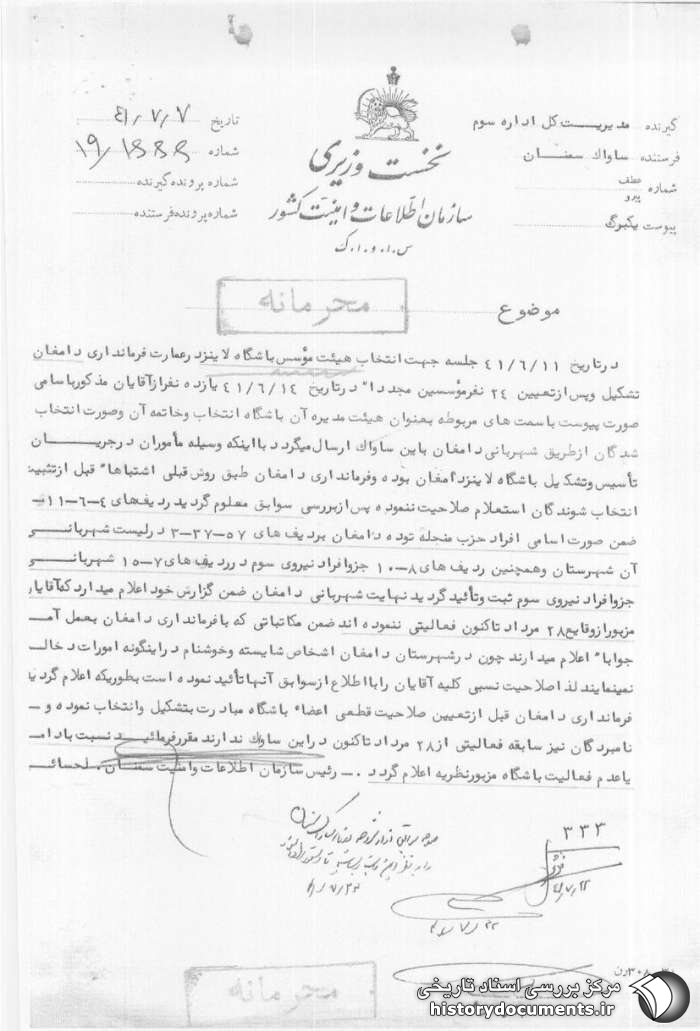 گیرنده مدیریت کل اداره سوم
فرستنده ساواک سمنان
شماره عطف
پیرو
پیوست یکبرگ
نخست وزیری
سازمان اطلاعات و امنیت کشور
س.ا.و.ا.ک
تاریخ ۴۱/۷/۷
شماره
شماره پرونده گیرنده
شماره پرونده فرستنده
محرمانه
موضوع
در تاریخ ۴۱/۶/۱۱ جلسه جهت انتخاب هیئت مؤسس باشگاه لاینز در عمارت فرمانداری دامغان
تشکیل و پس از تعیین ۲۴ نفر مؤسسین مجددا" در تاریخ ۴۱/۶/۱۴ یازده نفر از آقایان مذکور باسامی
صورت پیوست با سمت های مربوطه بعنوان هیئت مدیره آن باشگاه انتخاب و خاتمه آن و صورت انتخاب
شدگان از طریق شهربانی دامغان باین ساواک ارسال میگردد با اینکه وسیله مأموران در جریان
تأسیس و تشکیل باشگاه لاینز دامغان بوده و فرمانداری دامغان طبق روش قبلی اشتباها" قبل از تثبیت
انتخاب شوندگان استعلام صلاحیت ننموده پس از بررسی سوابق معلوم گردید ردیف های ۴-۶-۱۱
ضمن صورت اسامی افراد حزب منحله توده دامغان بردیف های ۵۷-۳۷-۳ در لیست شهربانی
آن شهرستان و همچنین ردیف های ۸-۱۰ جزو افراد نیروی سوم در ردیف های ۷-۱۵ شهربانی
جزو افراد نیروی سوم ثبت و تأئید گردید نهایت شهربانی دامغان ضمن گزارش خود اعلام میدارد که آقایان
مزبور از وقایع ۲۸ مرداد تاکنون فعالیتی ننموده اند ضمن مکاتباتی که با فرمانداری دامغان بعمل آمد
جوابا" اعلام میدارند چون در شهرستان دامغان اشخاص شایسته و خوشنام در اینگونه امورات دخالت
نمینمایند لذا صلاحیت نسبی کلیه آقایان را با اطلاع از سوابق آنها تأئید نموده است بطوریکه اعلام گردید
فرمانداری دامغان قبل از تعیین صلاحیت قطعی اعضاء باشگاه مبادرت بتشکیل و انتخاب نموده و
نامبردگان نیز سابقه فعالیتی از ۲۸ مرداد تاکنون در این ساواک ندارند مقرر فرمائید نسبت بادامه
یا عدم فعالیت باشگاه مزبور نظریه اعلام گردد .- رئیس سازمان اطلاعات و امنیت سمنان.
۳۳۳
محرمانه
مرکز بررسی اسناد تاریخی
historydocuments.ir